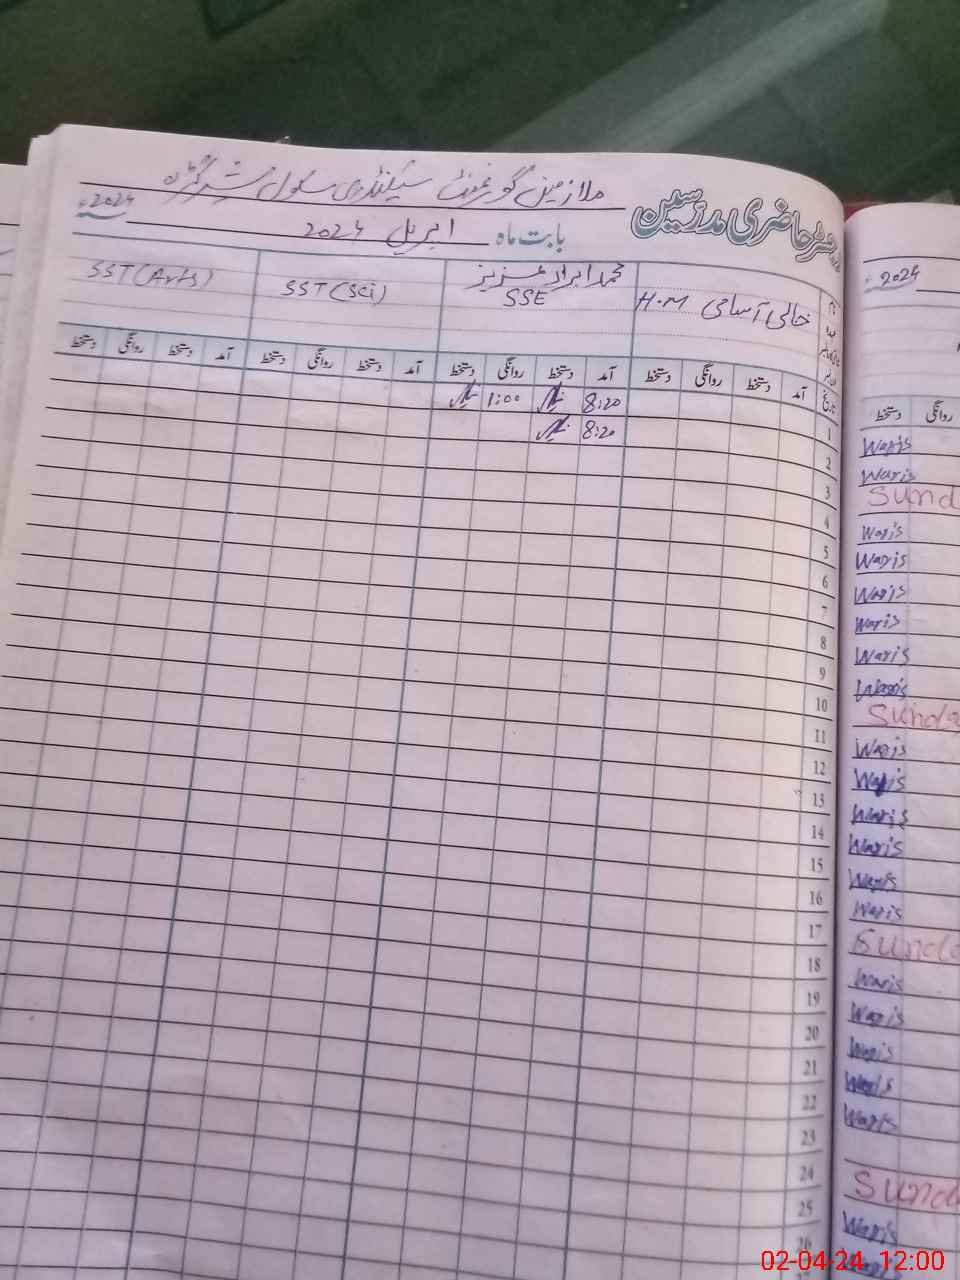 رجسٹر حاضری مدرسین
ملازمین گورنمنٹ سیکنڈری سکول
بابت ماہ اپریل 2024 2024ء
خالی آسامی H.M
محمد ابرار عزیز SSE
SST (Sci)
SST (Arts)
تاریخ آمد دستخط روانگی دستخط آمد دستخط روانگی دستخط آمد دستخط روانگی دستخط آمد دستخط روانگی دستخط
1 8:20 1:00
2 8:20
3
4
5
6
7
8
9
10
11
12
13
14
15
16
17
18
19
20
21
22
23
24
25
26
2024ء
روانگی دستخط
Waris
Waris
Sund
Waris
Waris
Waris
Waris
Waris
Waris
Sunda
Waris
Waris
Waris
Waris
Waris
Waris
Sunda
Waris
Waris
Waris
Waris
Waris
Sund
Waris
Waris
02-04-24 12:00